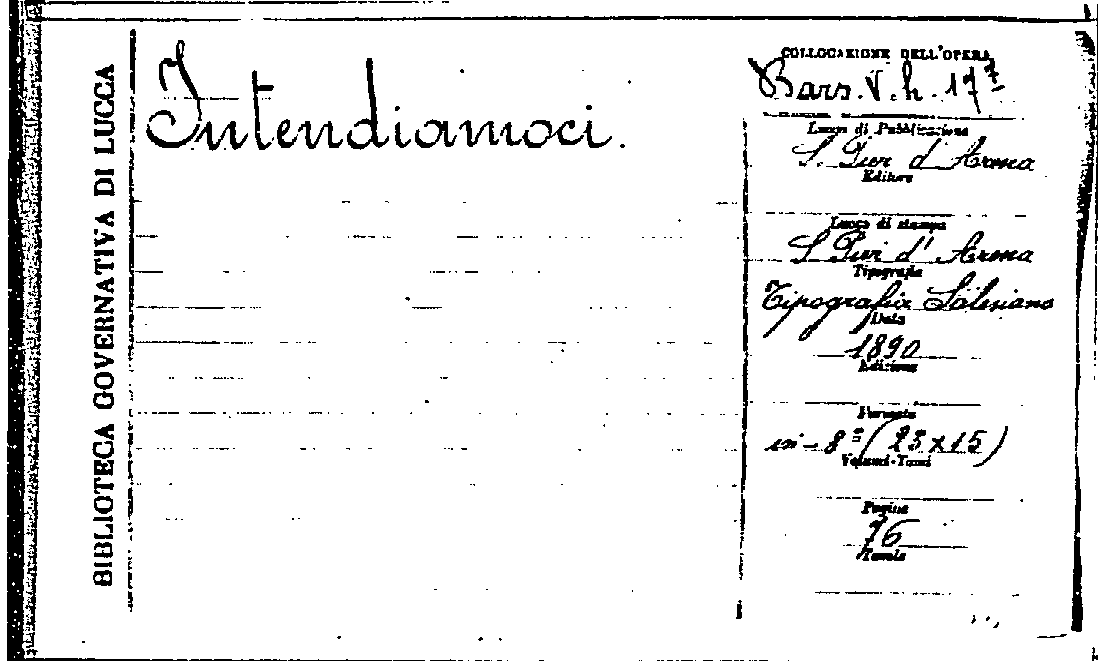 BIBLIOTECA GOVERNATIVA DI LUCCA
Intendiamoci.
COLLOCAZIONE DELL'OPERA
Bars. V. h. 17⁷
Luogo di Pubblicazione
S. Pier d'Arena
Editore
Luogo di stampa
S. Pier d'Arena
Tipografia
Tipografia Salesiana
Data
1890
Edizione
Formato
in-8º (23x15)
Volumi-Tomi
Pagine
76
Tavole